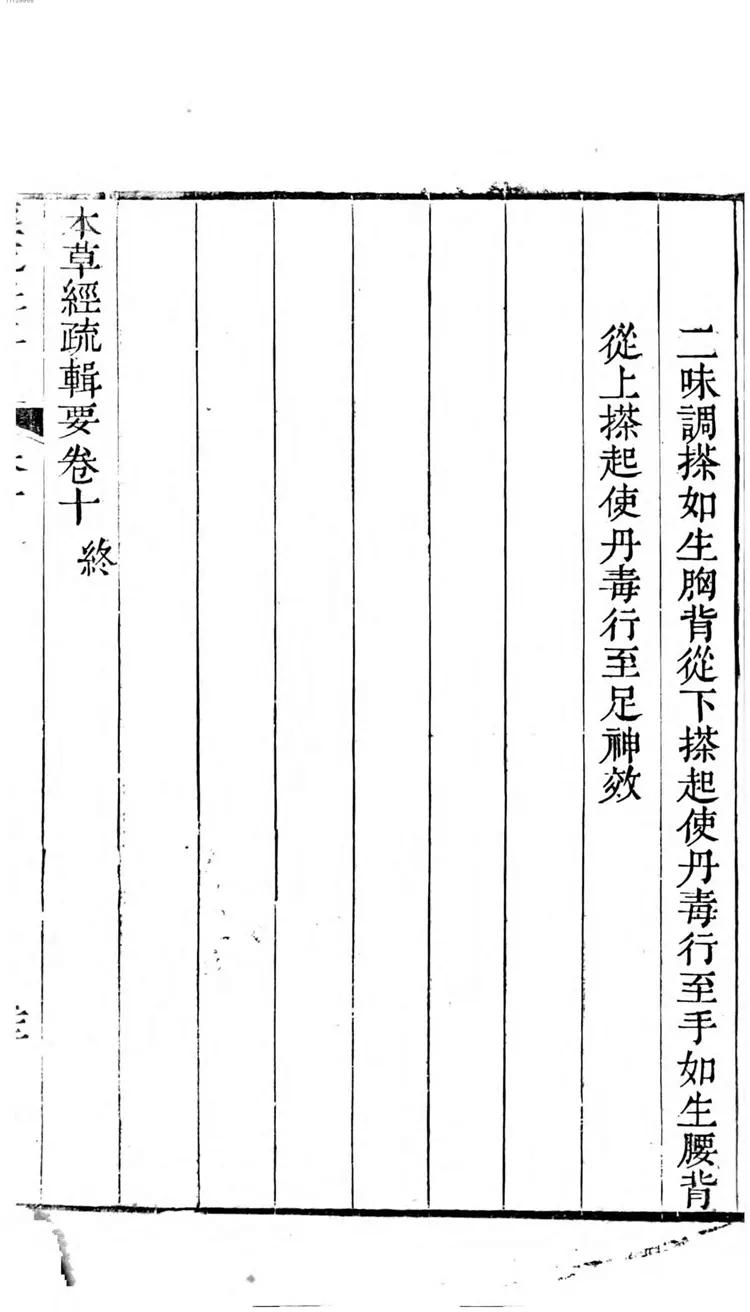 二味調搽如生胸背從下搽起使丹毒行至手如生腰背
從上搽起使丹毒行至足神效
本草經疏輯要卷十 終